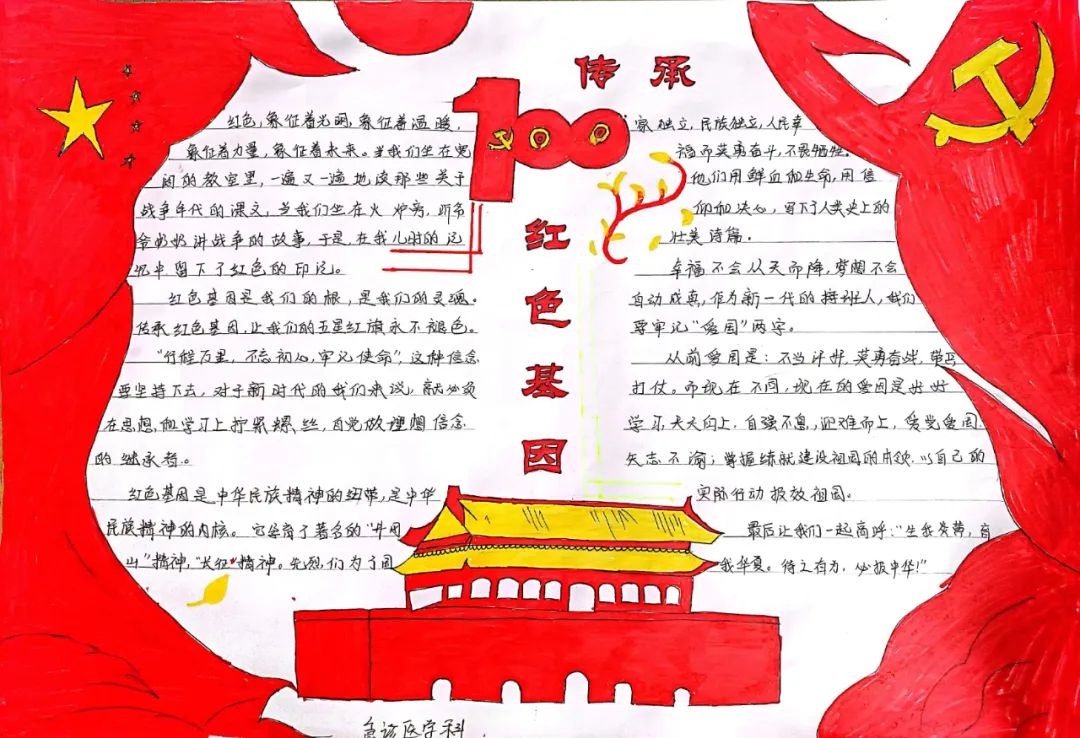 传承
100
红色基因
红色，象征着光明，象征着温暖，
象征着力量，象征着未来。当我们坐在宽
阔的教室里，一遍又一遍地读那些关于
战争年代的课文，当我们坐在火炉旁，听爷
爷奶奶讲战争的故事，于是，在我儿时的记
忆中留下了红色的印记。
红色基因是我们的根，是我们的灵魂。
传承红色基因，让我们的五星红旗永不褪色。
“行程万里，不忘初心，牢记使命”，这种信念
要坚持下去，对于新时代的我们来说，就必须
在思想和学习上拧紧螺丝，自觉做理想信念
的继承者。
红色基因是中华民族精神的纽带，是中华
民族精神的内核。它孕育了著名的“井冈
山”精神，“长征”精神。先烈们为了国
家独立，民族独立，人民幸
福而英勇奋斗，不畏牺牲。
他们用鲜血和生命，用信
仰和决心，写下了人类史上的
壮美诗篇。
幸福不会从天而降，梦想不会
自动成真，作为新一代的接班人，我们
要牢记“爱国”两字。
从前爱国是：不当汉奸，英勇奋战，带兵
打仗。而现在不同，现在的爱国是好好
学习，天天向上，自强不息，迎难而上，爱党爱国
矢志不渝，掌握练就建设祖国的本领，以自己的
实际行动报效祖国。
最后让我们一起高呼：“生我炎黄，育
我华夏。待之有为，必报中华！”
急诊医学科